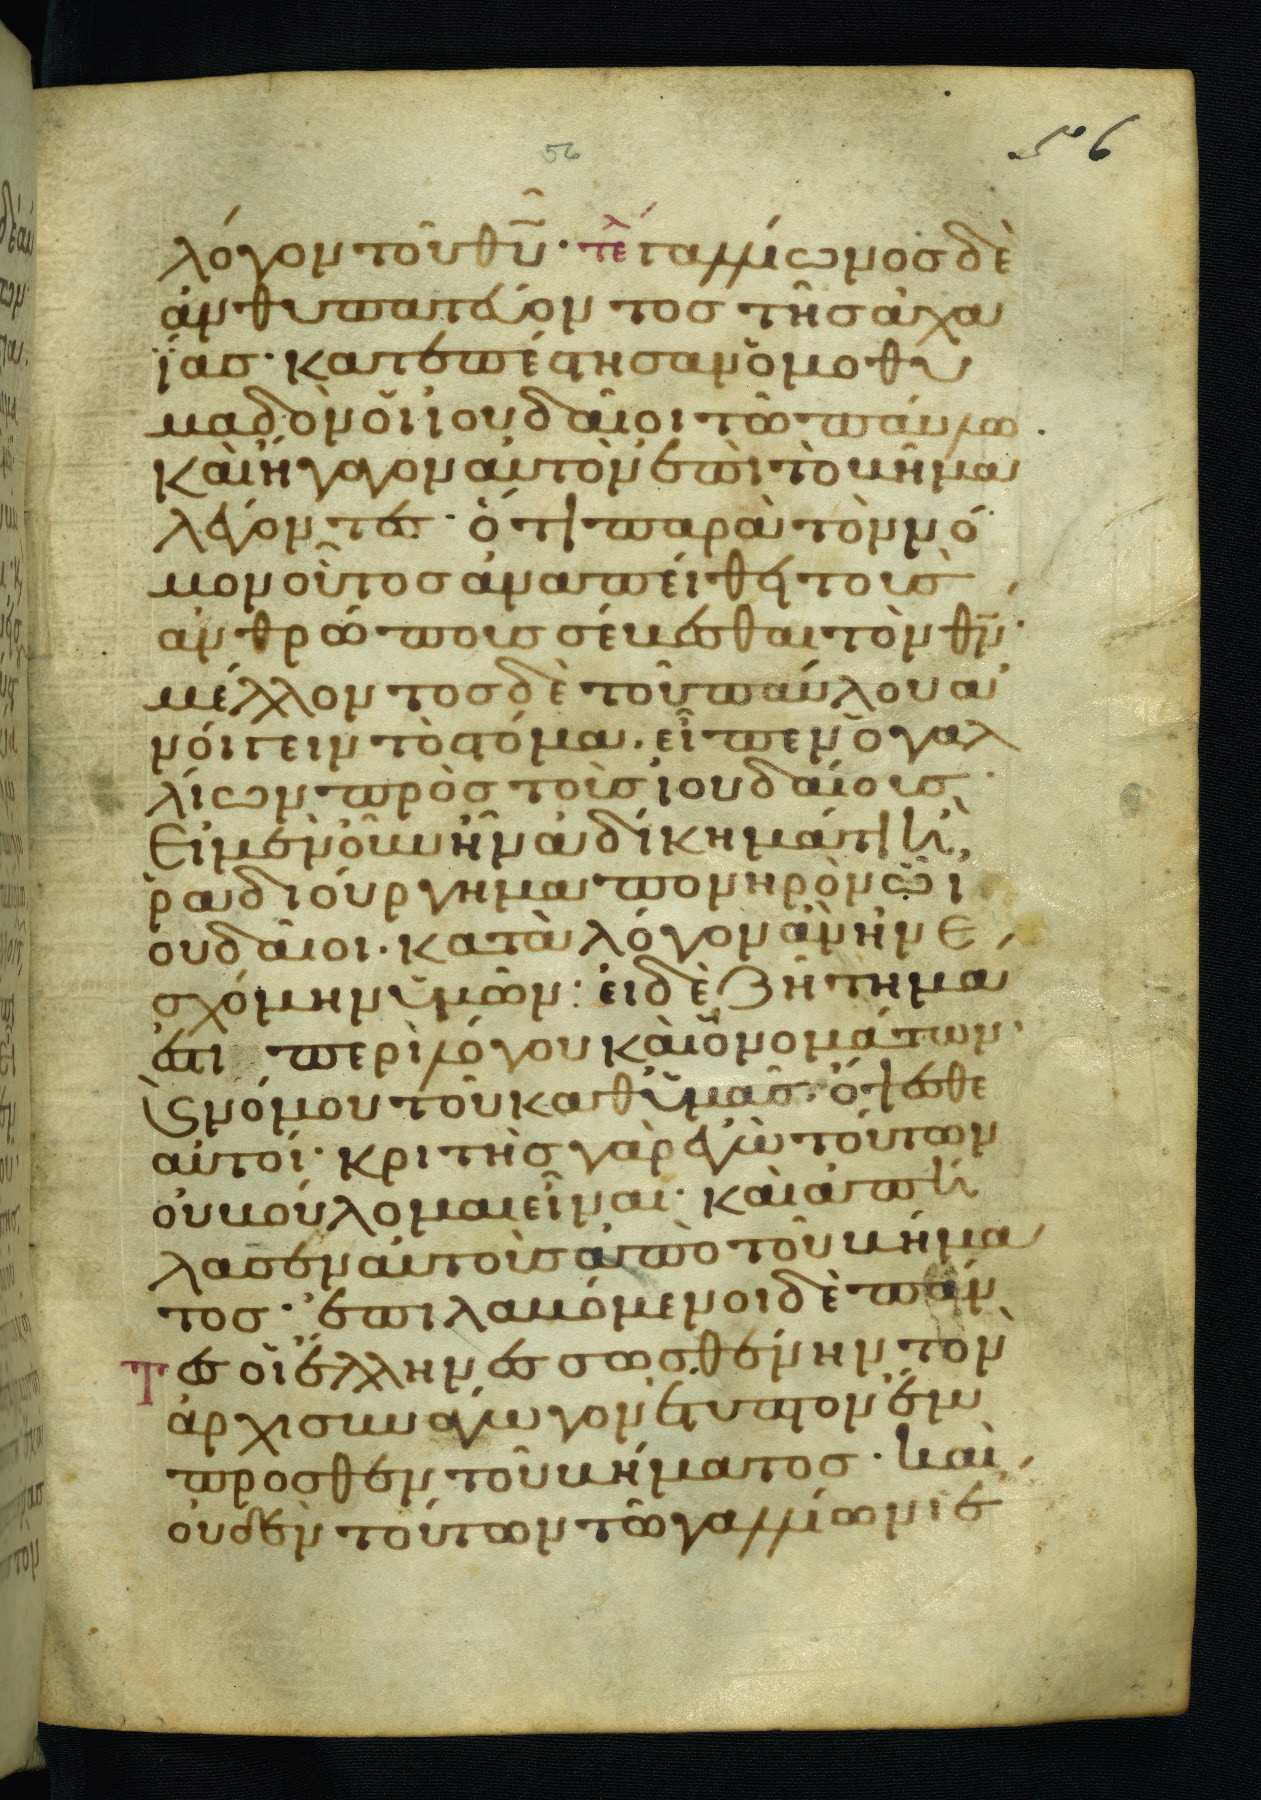 56
56
λόγον τοῦ θῦ · τε γαλλίωνος δὲ
ἀνθυπατεύοντος τῆς ἀχα
ΐας · κατεπέστησαν ὁμοθυ
μαδὸν οἱ ἰουδαῖοι τῶ παύλω .
καὶ ἤγαγον αὐτὸν ἐπὶ τὸ βῆμα
λέγοντες · ὅτι παρὰ τὸν νό
μον οὗτος ἀναπείθει τοὺς
ἀνθρώπους σέβεσθαι τὸν θν ·
μέλλοντος δὲ τοῦ παύλου ἀ
νοίγειν τὸ στόμα . εἶπεν ὁ γαλ
λίων πρὸς τοὺς ἰουδαίους ·
Εἰ μὲν οὖν ἦν ἀδίκημά τι ἢ
ῥαδιούργημα πονηρὸν ὦ ἰ
ουδαῖοι · κατὰ λόγον ἂν ἠνε
σχόμην ὑμῶν : εἰ δὲ ζήτημά
ἐστι περὶ λόγου καὶ ὀνομάτων
ϗ νόμου τοῦ καθ ὑμᾶς . ὄψεσθε
αὐτοί · κριτὴς γὰρ ἐγὼ τούτων
οὐ βούλομαι εἶναι · καὶ ἀπή
λασεν αὐτοὺς ἀπὸ τοῦ βήμα
τος · ἐπιλαβόμενοι δὲ πάν
τες οἱ ἕλληνες σωσθένην τὸν
ἀρχισυνάγωγον ἔτυπτον ἔμ
προσθεν τοῦ βήματος · καὶ
οὐδὲν τούτων τῶ γαλλίωνι ἔ